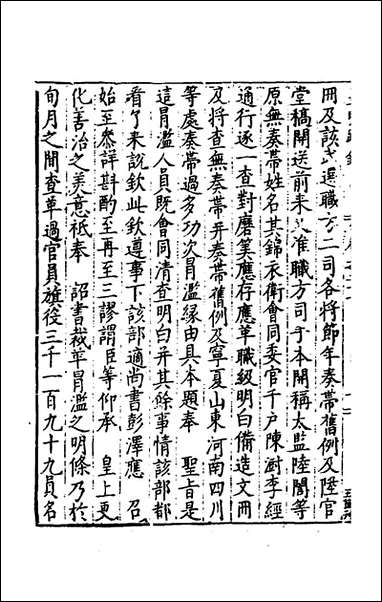 冊及該司選職方二司各將節年奏帶舊例及陞官
堂稿開送前来又准職方司手本開稱太監陸誾等
原無奏帶姓名其錦衣衛會同委官千戶陳澍李經
通行逐一查對磨筭應存應革職級明白備造文冊
及將查無奏帶并奏帶舊例及寧夏山東河南四川
等處奏帶過多功次冒濫縁由具本題奉　聖旨是
這冒濫人員既會同清查明白并其餘事情該部都
看了来說欽此欽遵事下該部適尚書彭澤應　召
始至叅詳斟酌至再至三謬謂臣等仰承　皇上更
化善治之美意祗奉　詔書裁革冒濫之明條乃於
旬月之間查革過官員旗役三千一百九十九員名